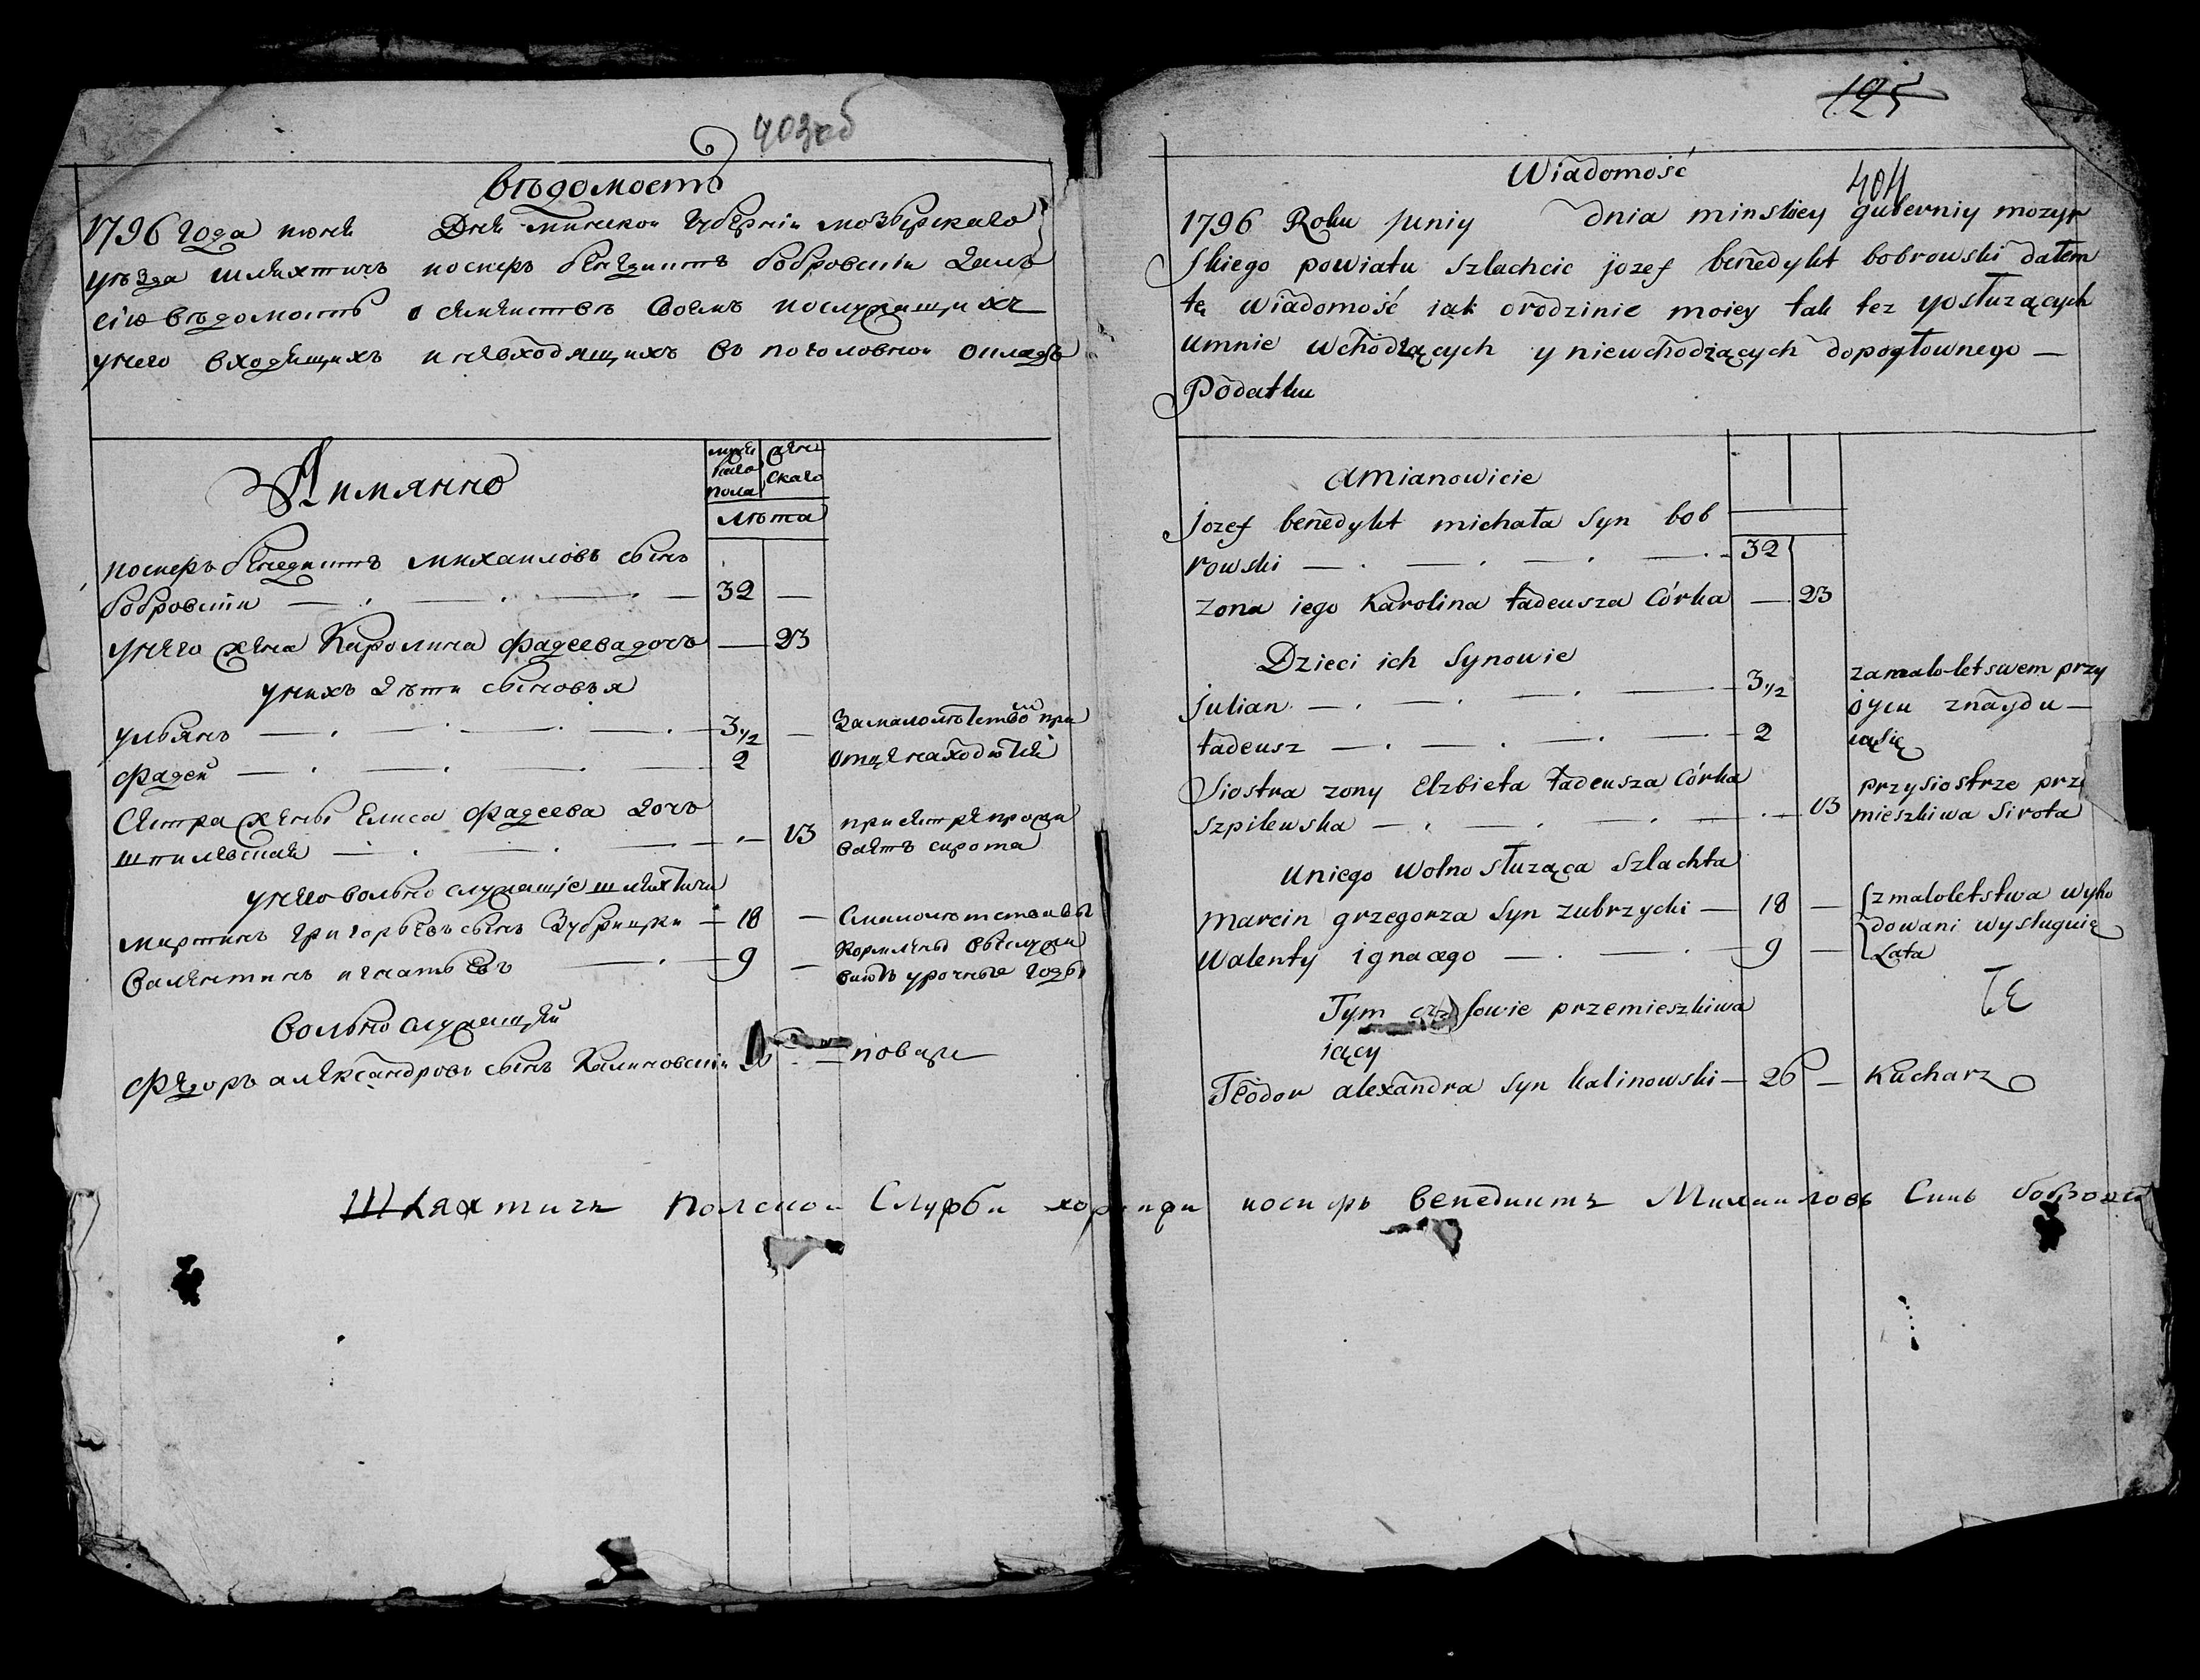 403об
Вѣдомость
1796 года июня Дня минской губернiи мозырскаго
уѣзда шляхтичъ иосифъ бенедиктъ бобровскiи далъ
сiю вѣдомость о семействѣ своемъ и служащихъ
унего входящихъ и невходящихъ въ поголовнои окладъ
Аимянно
мужескаго пола
женскаго
лѣта
иосифъ бенедиктъ михаиловъ сынъ
бобровскiи — 32 —
унего жена Каролина фадеева дочь — 23
унихъ дѣти сыновья
ульянъ — 3 1/2 — За малолѣтством при
фадей — 2 отце находются
Сестра жены Елиса фадеева дочь
шпилевская — 13 при сестре прожи
ваетъ сирота
унего вольно служащiе шляхтичи
мартинъ григорьевъ сынъ Зубрицки — 18 — Смалолѣтства вы
валентинъ игнатьевъ — 9 — кормлены выслужи
ваютъ урочные годы
вольно служащей
Фёдоръ александровъ сынъ Калиновскiи — повар
125
404
Wiadomość
1796 Roku Juniy dnia minskiey guberniy mozyr
skiego powiatu szlachcic jozef benedykt bobrowski dałem
tę wiadomość iak orodzinie moiey tak tez yosłuzących
umnie wchodzących y niewchodzących dopogłownego —
Podatku
amianowicie
jozef benedykt michała syn bob
rowski — 32
zona iego Karolina tadeusza Córka — 23
Dzieci ich Synowie
julian — 3 1/2 zamalo-letswem przy
tadeusz — 2 oycu znaydu —
iąsię
Siostra zony Elzbieta tadeusza Córka
szpilewska — 13 przysiostrze prze
mieszkiwa Sirota
uniego wolno słuząca szlachta
marcin grzegorza syn zubrzycki — 18 — z maloletstwa wyho
walenty ignacego — 9 — dowani wysługuią
Lata
Tym czasowie przemieszkiwa
iący
Teodor alexandra syn kalinowski — 26 — Kucharz
Шляхтичъ Полскои Службы хорунжи иосифъ Бенедиктъ Михаиловъ Синъ бобровски